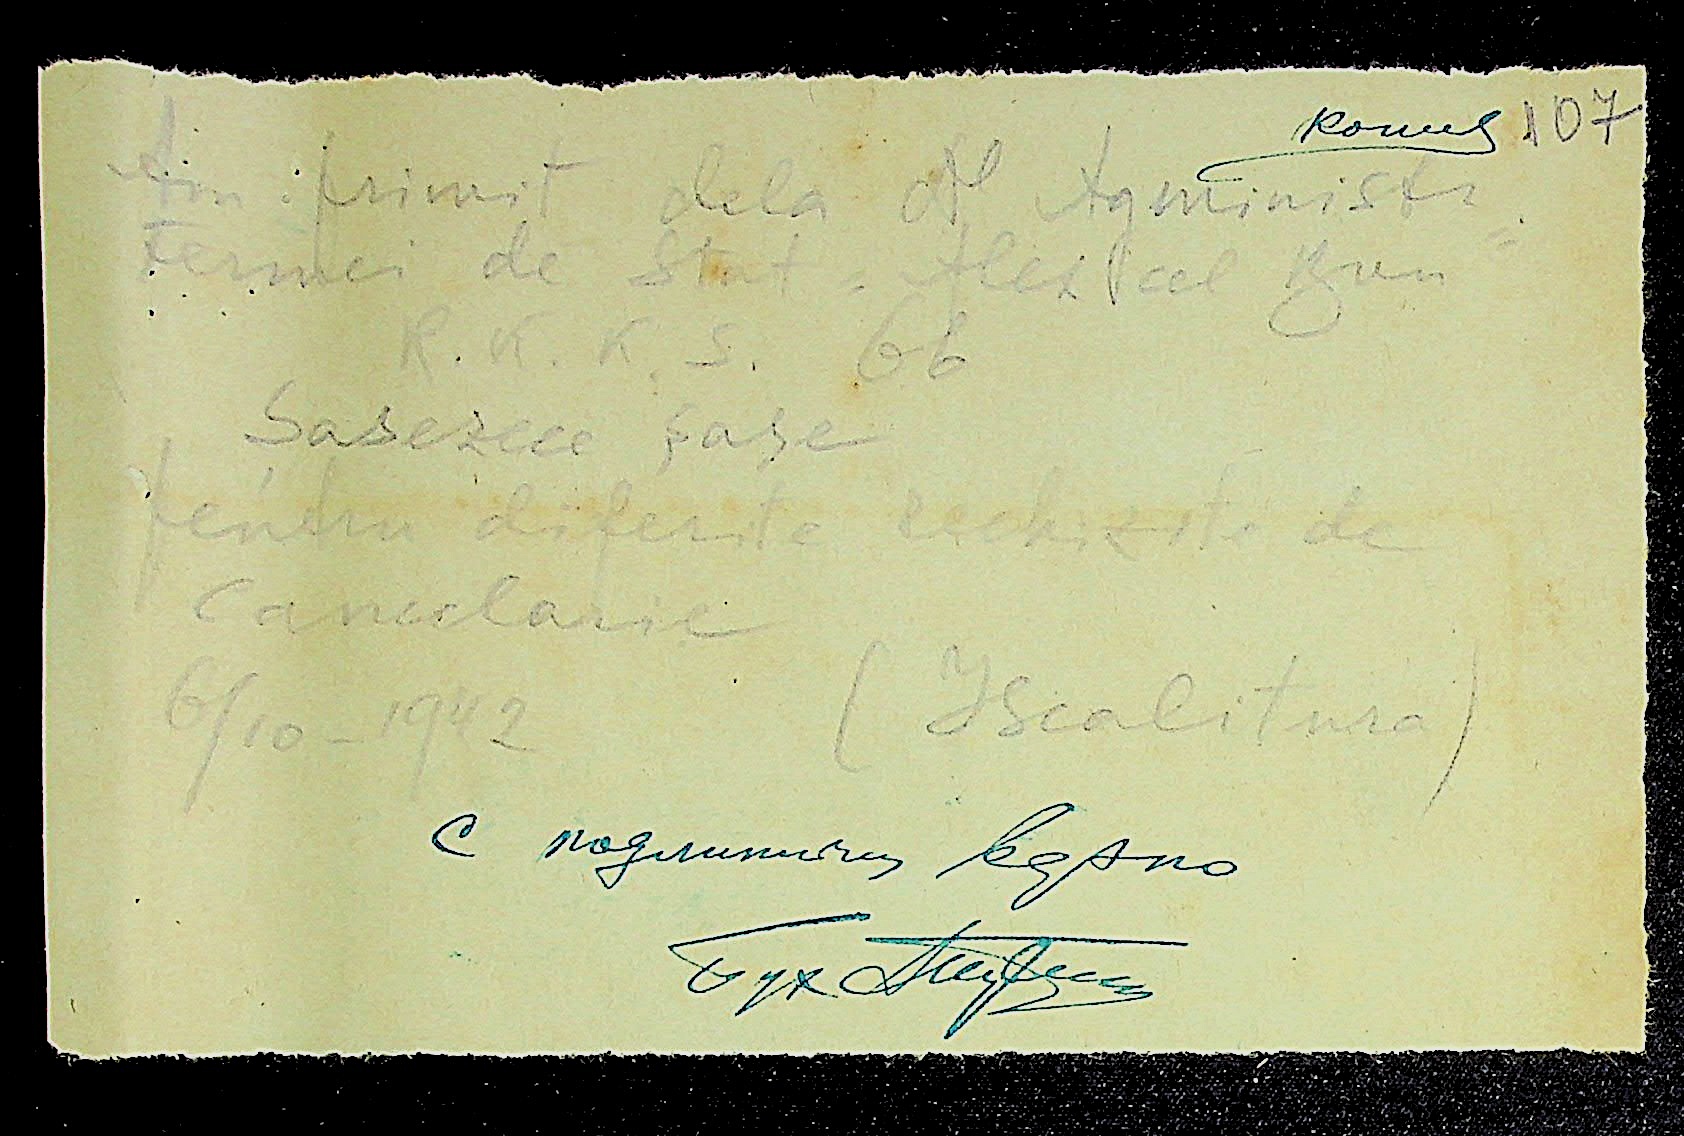 копия 107
Am primit dela Dl Agministr.
Fermei de Stat "Alex cel Bun"
R.K.K.S. 66
Sasezece şase
pentru diferite rechizite de
Cancelarie
6/10-1942 (Iscalitura)
С подлинным верно
Бух